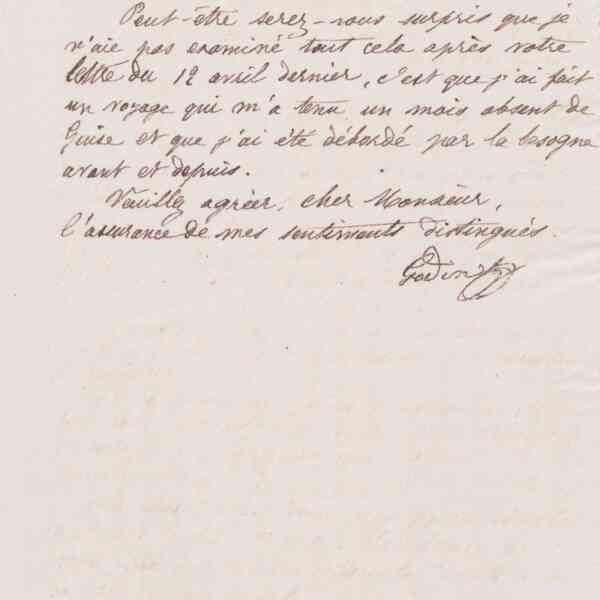 Peut-être serez-vous surpris que je
n'aie pas examiné tout cela après votre
lettre du 12 avril dernier, c'est que j'ai fait
un voyage qui m'a tenu un mois absent de
Guise et que j'ai été débordé par la besogne
avant et depuis.
Veuillez agréer, cher Monsieur,
l'assurance de mes sentiments distingués.
Godin